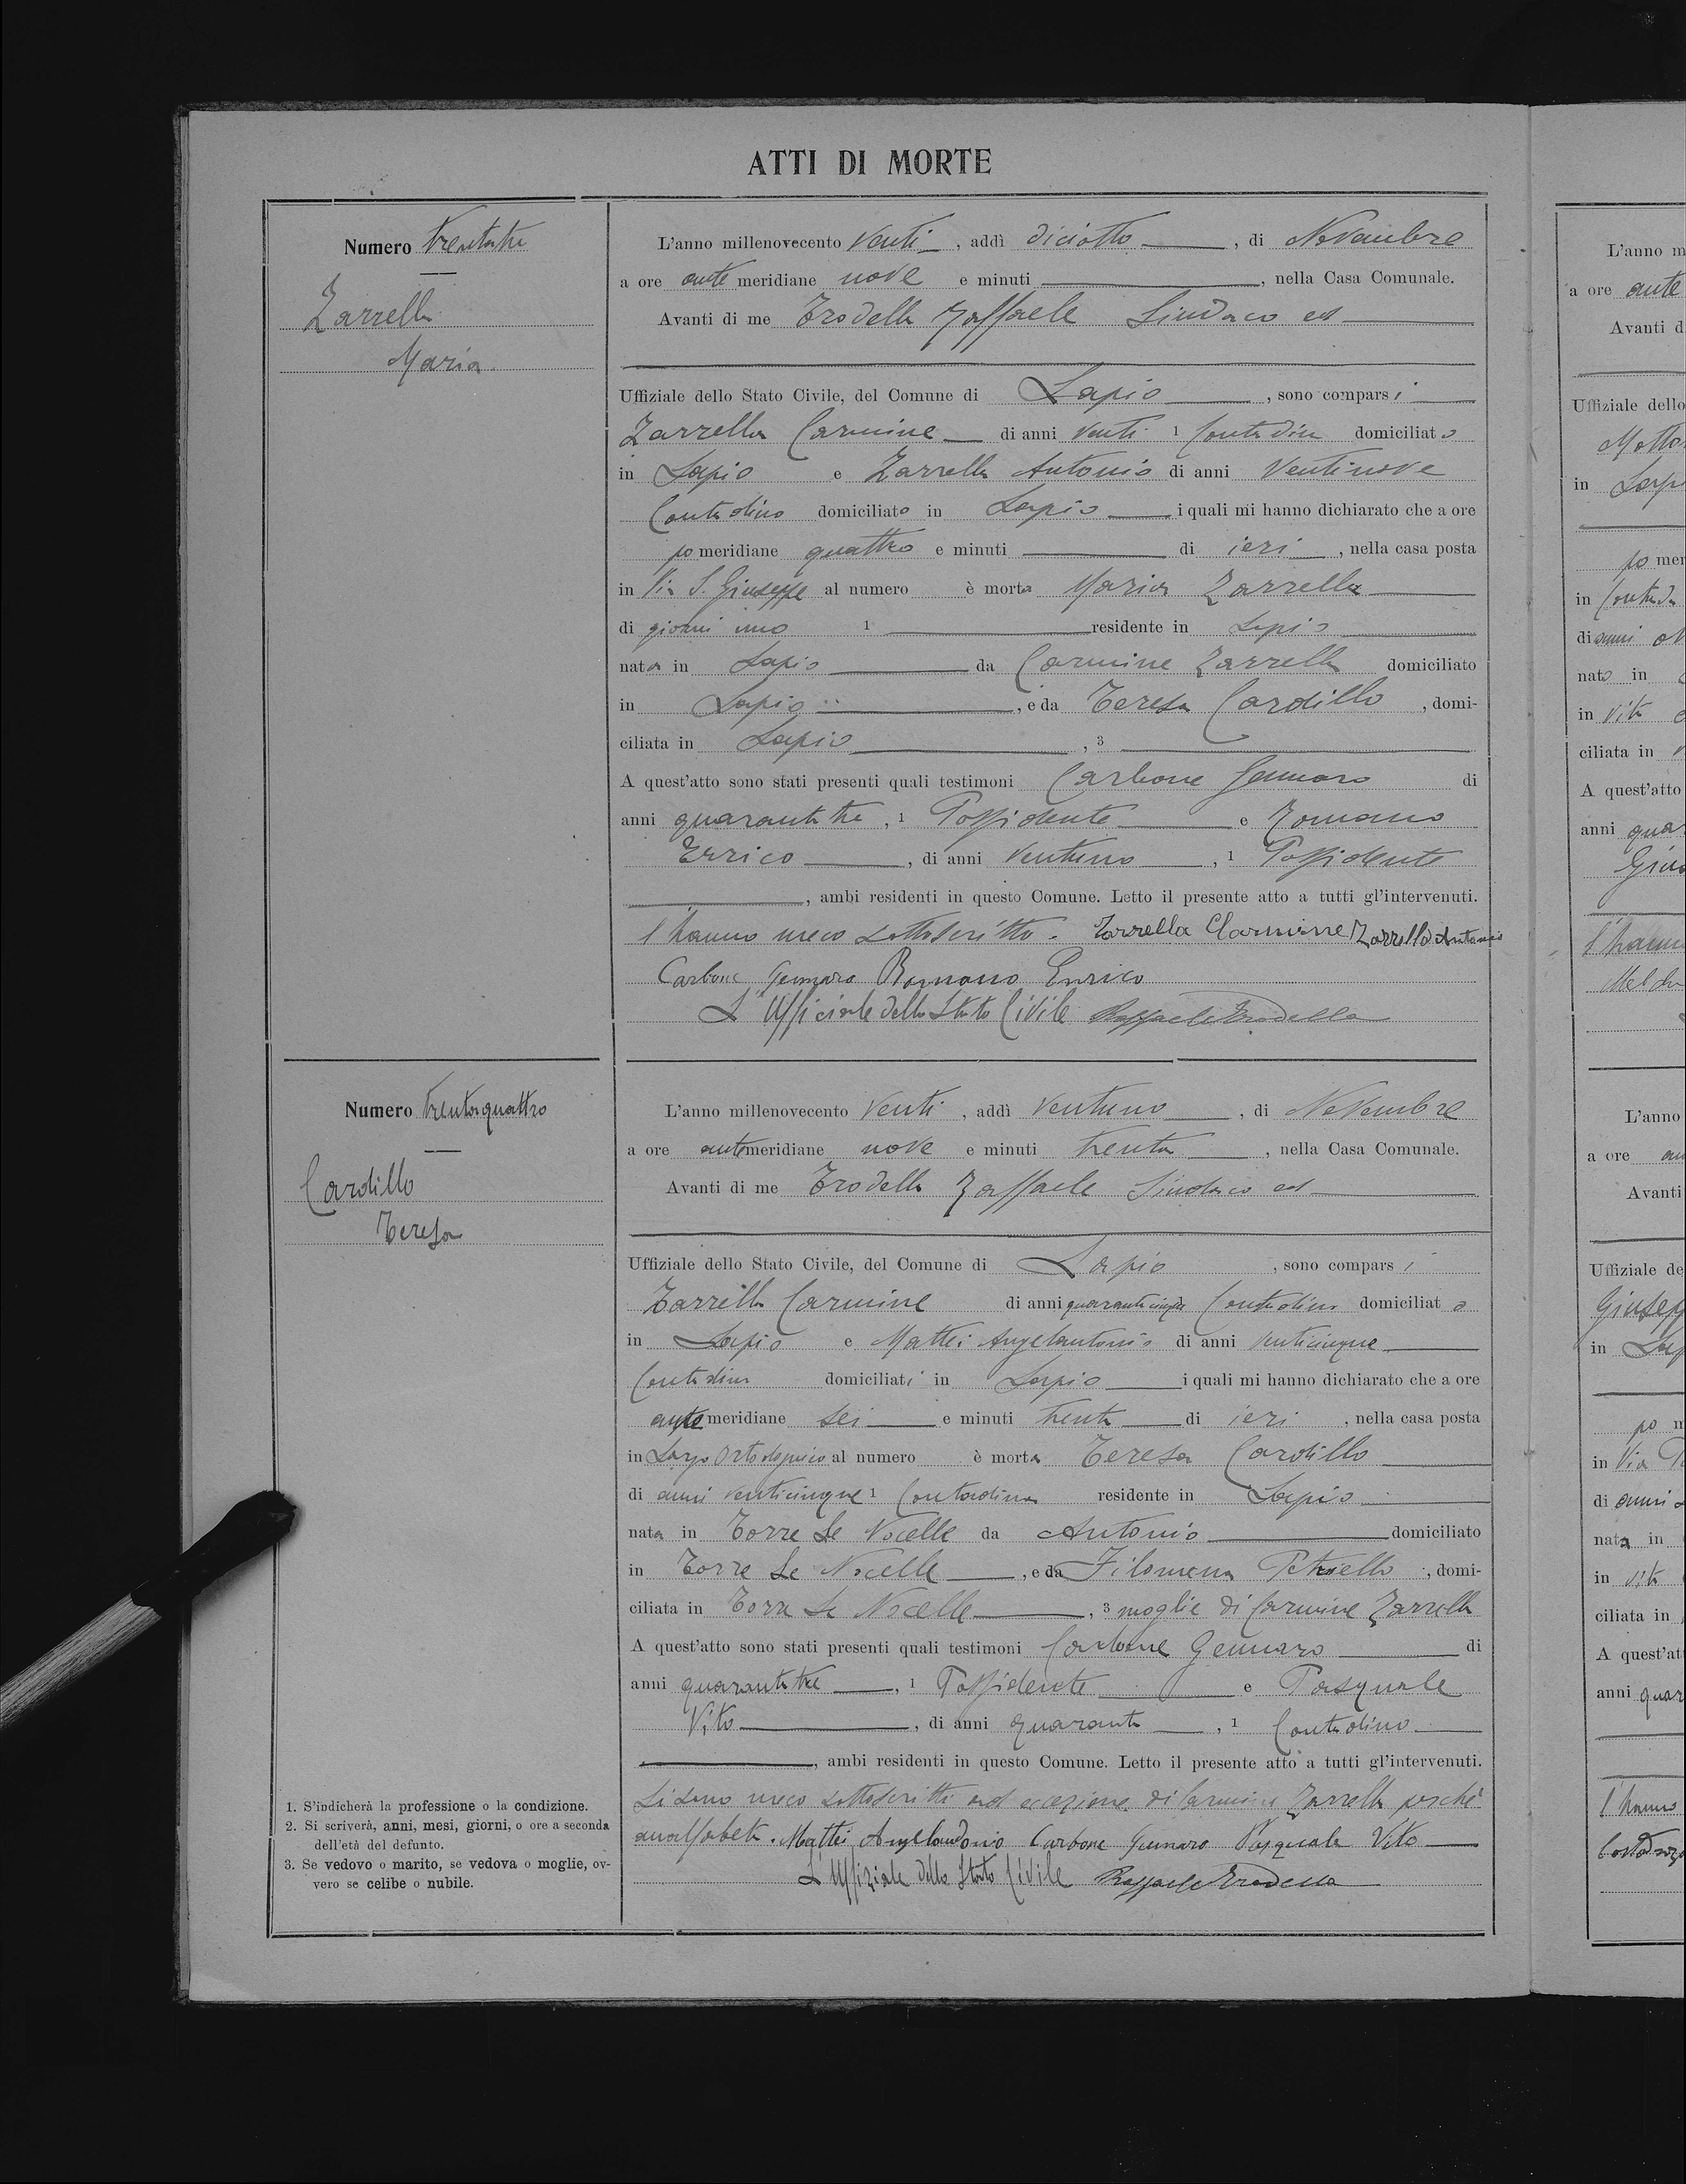 ATTI DI MORTE
Numero trentatre
Zarrella
Maria
L'anno millenovecento Venti, addì diciotto, di Novembre
a ore antemeridiane nove e minuti, nella Casa Comunale.
Avanti di me Trodella Raffaele Sindaco ed
Uffiziale dello Stato Civile, del Comune di Lapio, sono comparsi
Zarrella Carmine di anni venti 1 Contadin domiciliato
in Lapio e Zarrella Antonio di anni Ventinove
Contadino domiciliato in Lapio i quali mi hanno dichiarato che a ore
pomeridiane quattro e minuti di ieri, nella casa posta
in Via S. Giuseppe al numero è morta Maria Zarrella
di giorni uno 1 residente in Lapio
nata in Lapio da Carmine Zarrella domiciliato
in Lapio, e da Teresa Cardillo, domi-
ciliata in Lapio, 3
A quest'atto sono stati presenti quali testimoni Carbone Gennaro di
anni quarantatre, 1 Possidente e Romano
Errico, di anni ventuno, 1 Possidente
, ambi residenti in questo Comune. Letto il presente atto a tutti gl'intervenuti.
l'hanno meco sottoscritto. Zarrella Clarmine Zarrella Antonio
Carbone Gennaro Romano Enrico
L'Ufficiale dello Stato Civile Raffaele Trodella
Numero trentaquattro
Cardillo
Teresa
L'anno millenovecento Venti, addì ventuno, di Novembre
a ore antemeridiane nove e minuti trenta, nella Casa Comunale.
Avanti di me Trodella Raffaele Sindaco ed
Uffiziale dello Stato Civile, del Comune di Lapio, sono comparsi
Zarrella Carmine di anni quarantacinque Contadino domiciliato
in Lapio e Mattei Angelantonio di anni venticinque
Contadino domiciliati in Lapio i quali mi hanno dichiarato che a ore
antemeridiane sei e minuti trenta di ieri, nella casa posta
in Largo al numero è morta Teresa Cardillo
di anni venticinque 1 Contadina residente in Lapio
nata in Torre Le Nocelle da Antonio domiciliato
in Torre Le Nocelle, e da Filomena Petriello, domi-
ciliata in Torre Le Nocelle, 3 moglie di Carmine Zarrella
A quest'atto sono stati presenti quali testimoni Carbone Gennaro di
anni quarantatre, 1 Possidente e Pasquale
Vito, di anni quaranta, 1 Contadino
, ambi residenti in questo Comune. Letto il presente atto a tutti gl'intervenuti.
Si sono meco sottoscritti ad eccezione di Carmine Zarrella perchè
analfabeta. Mattei Angelandonio Carbone Gennaro Pasquale Vito
L'Uffiziale dello Stato Civile Raffaele Trodella
1. S'indicherà la professione o la condizione.
2. Si scriverà, anni, mesi, giorni, o ore a seconda
dell'età del defunto.
3. Se vedovo o marito, se vedova o moglie, ov-
vero se celibe o nubile.
L'anno m
a ore ante
Avanti d
Uffiziale dello
in Lapi
po mer
in Contrada
di anni
nato in
in vita
ciliata in
A quest'atto
anni quar
l'hann
L'anno
a ore an
Avanti
Uffiziale de
Giusep
in Lap
po m
in Via
di anni
nata in
in vita
ciliata in
A quest'at
anni quar
l'hanno